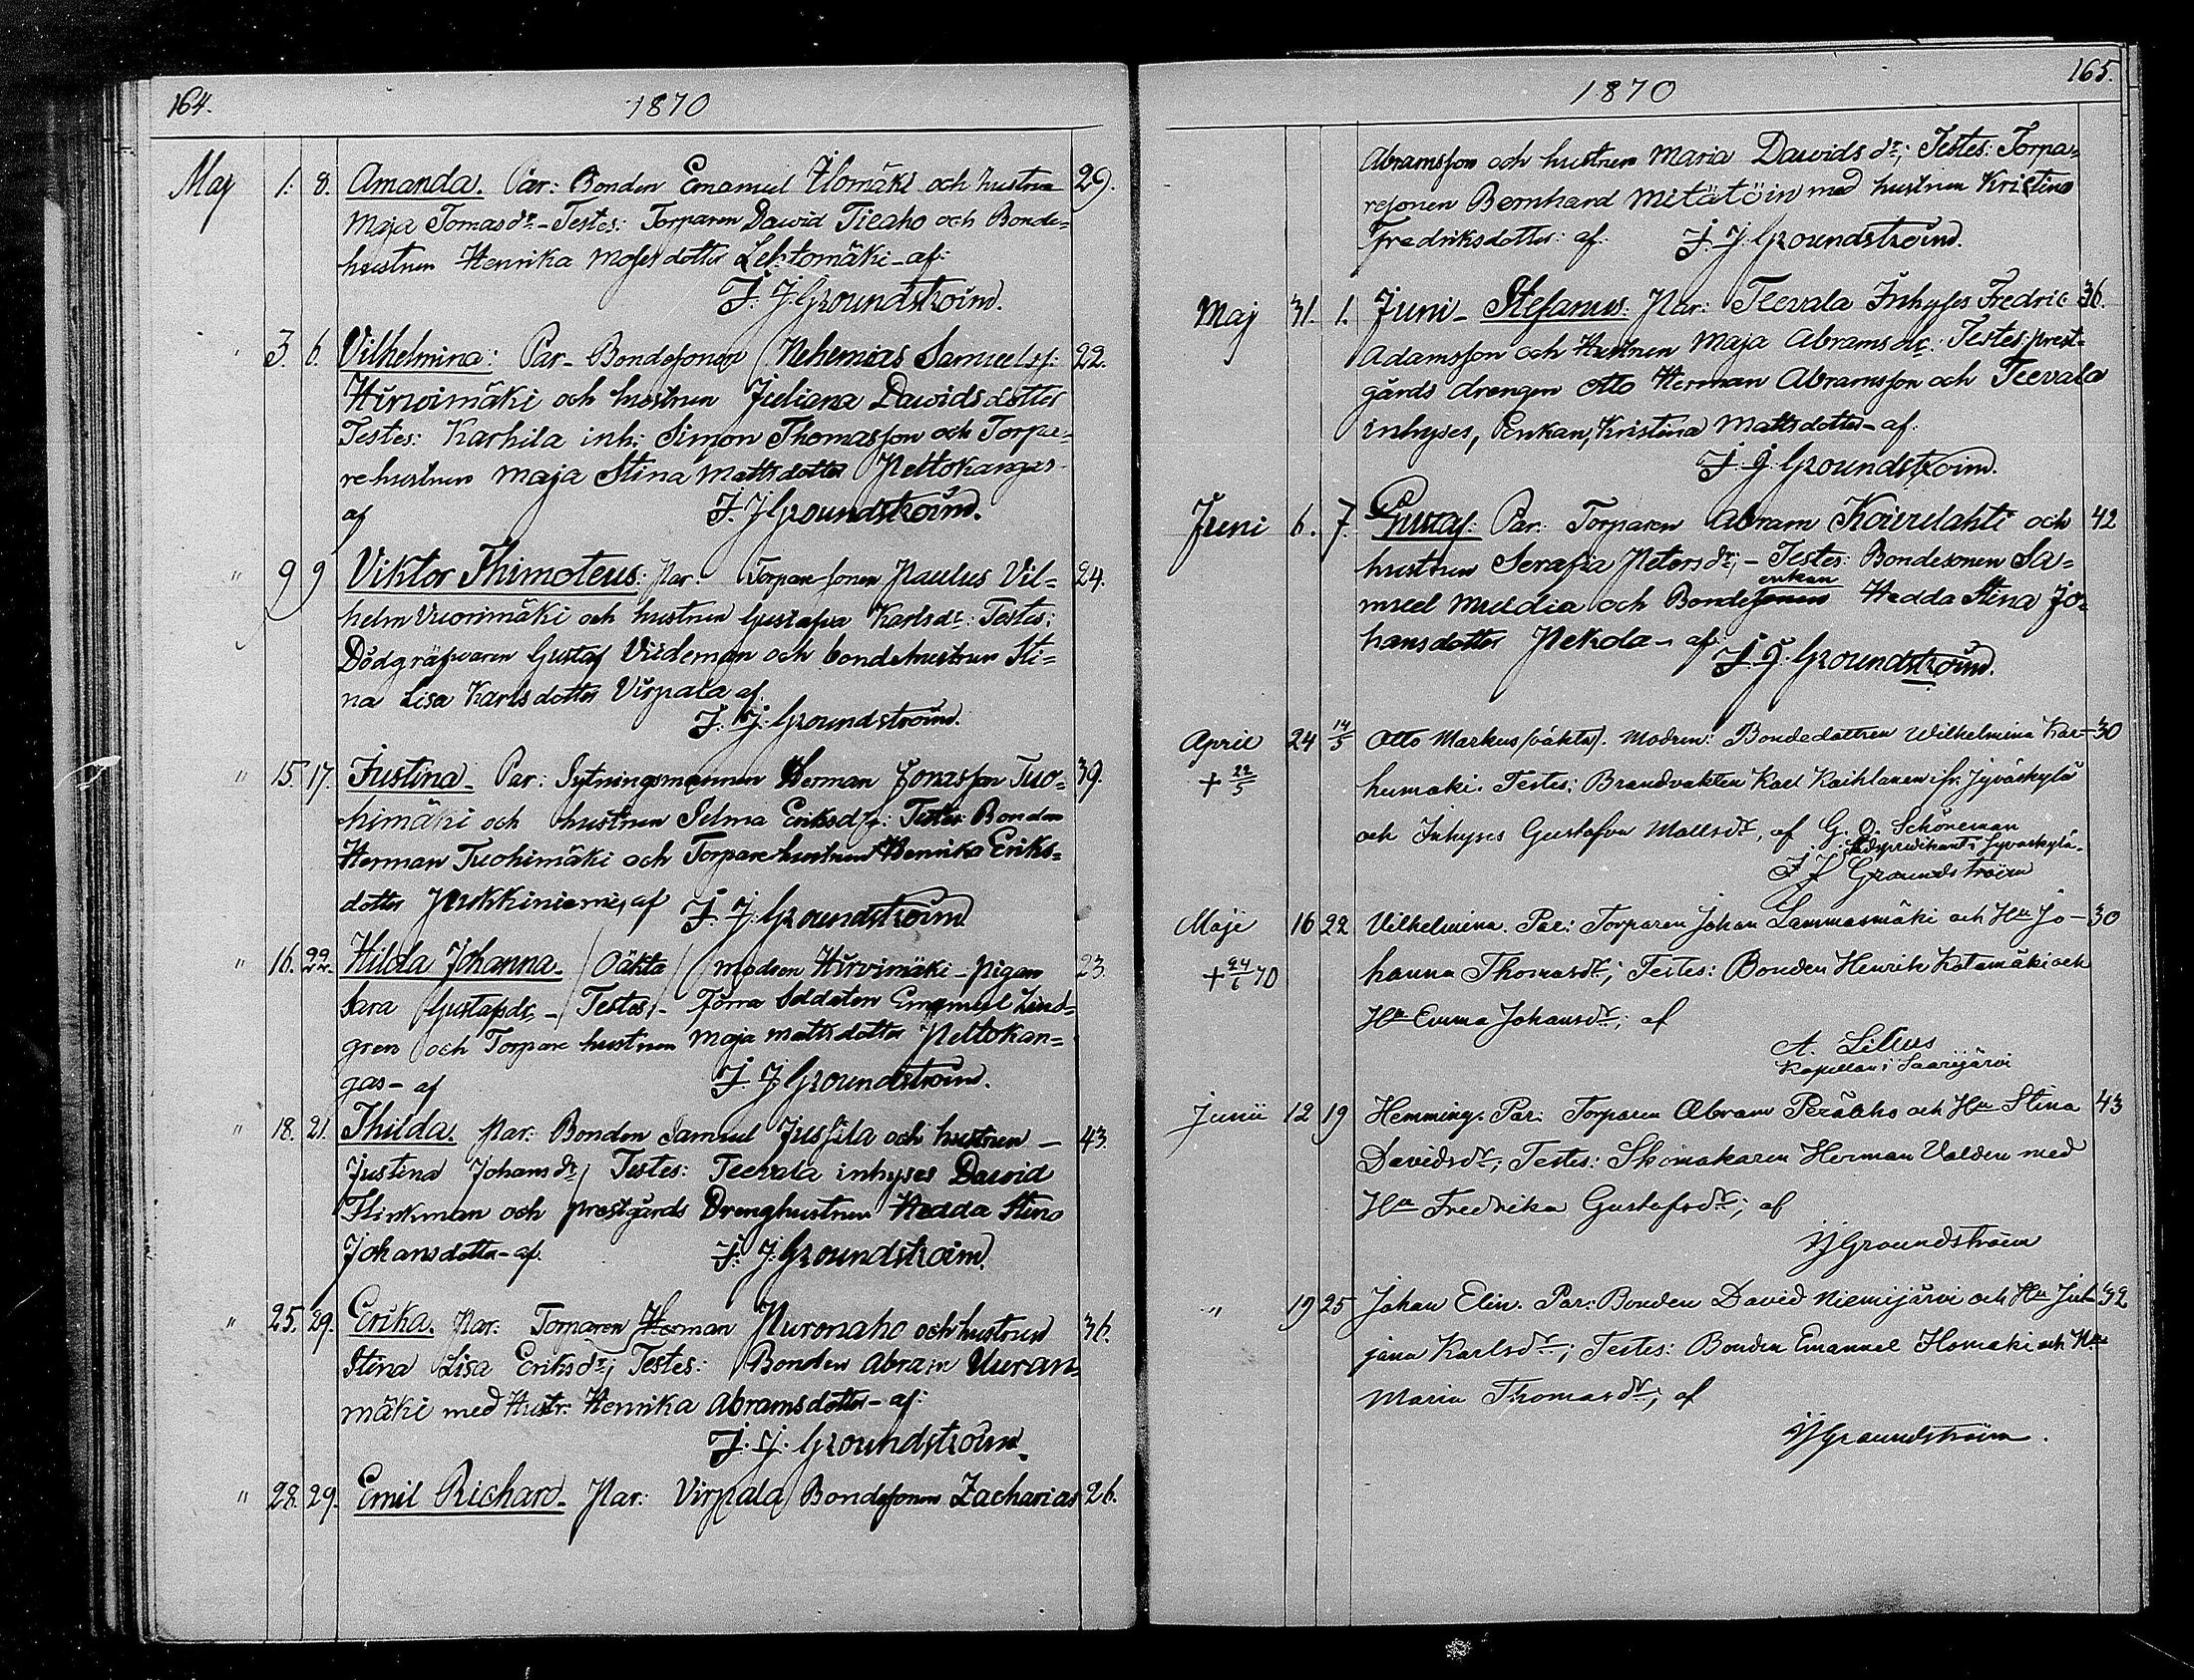 164.
1870
Maj 1. 8. Amanda. Par: Bonden Emanuel Ilomäki och hustrun 29.
Maja Tomasdr - Testes: Torparen Dawid Tieaho och Bonde-
hustrun Henrika Mosesdotter Lehtomäki - af:
J. J. Groundstroim.
" 3. 6. Vilhelmina: Par - Bondesonen Nehemias Samuelss: 22.
Hirvimäki och hustrun Juliana Dawidsdotter
Testes: Karhila inh: Simon Thomasson och Torpa-
rehustrun Maja Stina Mattsdotter Peltokangas
af J. J. Groundstroim.
" 9 9 Viktor Thimoteus: Par: Torparesonen Paulus Vil- 24.
helm Vuorimäki och hustrun Gustafva Karlsdr: Testes:
Dödgräfvaren Gustaf Videman och bondehustrun Sti-
na Lisa Karlsdotter Virpala af.
J. J. Groundstroim.
" 15. 17. Justina - Par: Sytningsmannen Herman Jonasson Tuo- 39.
himäki och hustrun Selma Eriksdr: Testes: Bonden
Herman Tuohimäki och Torparehustrun Henrika Eriks-
dotter Pukkiniemi, af J. J. Groundstroim
" 16. 22. Hilda Johanna - / Oäkta / modren Hirvimäki - pigan 23.
Sara Gustafsdr, - Testes, - Förra Soldaten Emanuel Lind-
gren och Torparehustrun Maja Mattsdotter Peltokan-
gas - af J. J. Groundstroim.
" 18. 21. Thilda. Par: Bonden Samuel Jussila och hustrun - 43.
Justina Johansdr, Testes: Teevala inhyses Dawid
Flinkman och prestgårds Drenghustrun Hedda Stina
Johansdotter - af. J. J. Groundstroim.
" 25. 29. Erika. Par. Torparen Herman Puronaho och hustrun 36.
Stina Lisa Eriksdr; Testes: Bonden Abram Uuran-
mäki med Hustr: Henrika Abramsdotter - af:
J. J. Groundstroim.
" 28. 29. Emil Richard - Par: Virpala Bondesonen Zacharias 26.
165.
1870
Abramsson och hustrun Maria Dawidsdr; Testes: Torpa-
resonen Bernhard Mitätöin med hustrun Kristina
Fredriksdotter: af: J. J. Groundstroim.
Maj 31. 1. Juni - Stefanus: Par: Teevala Inhyses Fredric 36.
Adamsson och Hustrun Maja Abramsdr: Testes: prest-
gårds drengen Otto Herman Abramsson och Teevala
inhyses, Enkan, Kristina Mattsdotter - af.
J. J. Groundstroim.
Juni 6. 7. Gustaf: Par: Torparen Abram Koivulahti och 42
hustrun Serafia Petersdr; - Testes: Bondesonen Sa-
muel Muldia och Bondeenkan Hedda Stina Jo-
hansdotter Pekola - af: J. J. Groundstroim.
April 24 14/5 Otto Markus (oäkta). Modren: Bondedottren Wilhelmina Kar- 30
+ 22/5 humäki. Testes: Brandvakten Karl Kaihlanen ifr. Jyväskylä
och Inhyses Gustafva Mattsdr, af G. O. Schöneman
Stadspredikant i Jyväskylä.
J. J. Groundströim
Maji 16 22 Vilhelmina. Par: Torparen Johan Lammasmäki och Hu Jo- 30
+ 24/6 70 hanna Thomasdr; Testes: Bonden Henrik Kotamäki och
Hu Emma Johansdr; af
A. Lilius
Kapellan i Saarijärvi
Junii 12 19 Hemming. Par: Torparen Abram Peräaho och Hu Stina 43
Davidsdr; Testes: Skomakaren Herman Valden med
Hu Fredrika Gustafsdr; af
JJGroundströim
" 19 25 Johan Elin. Par: Bonden David Niemijärvi och Hu Juli- 32
jana Karlsdr; Testes: Bonden Emanuel Ilomäki och Hu
Maria Thomasdr; af
JJGroundströim.